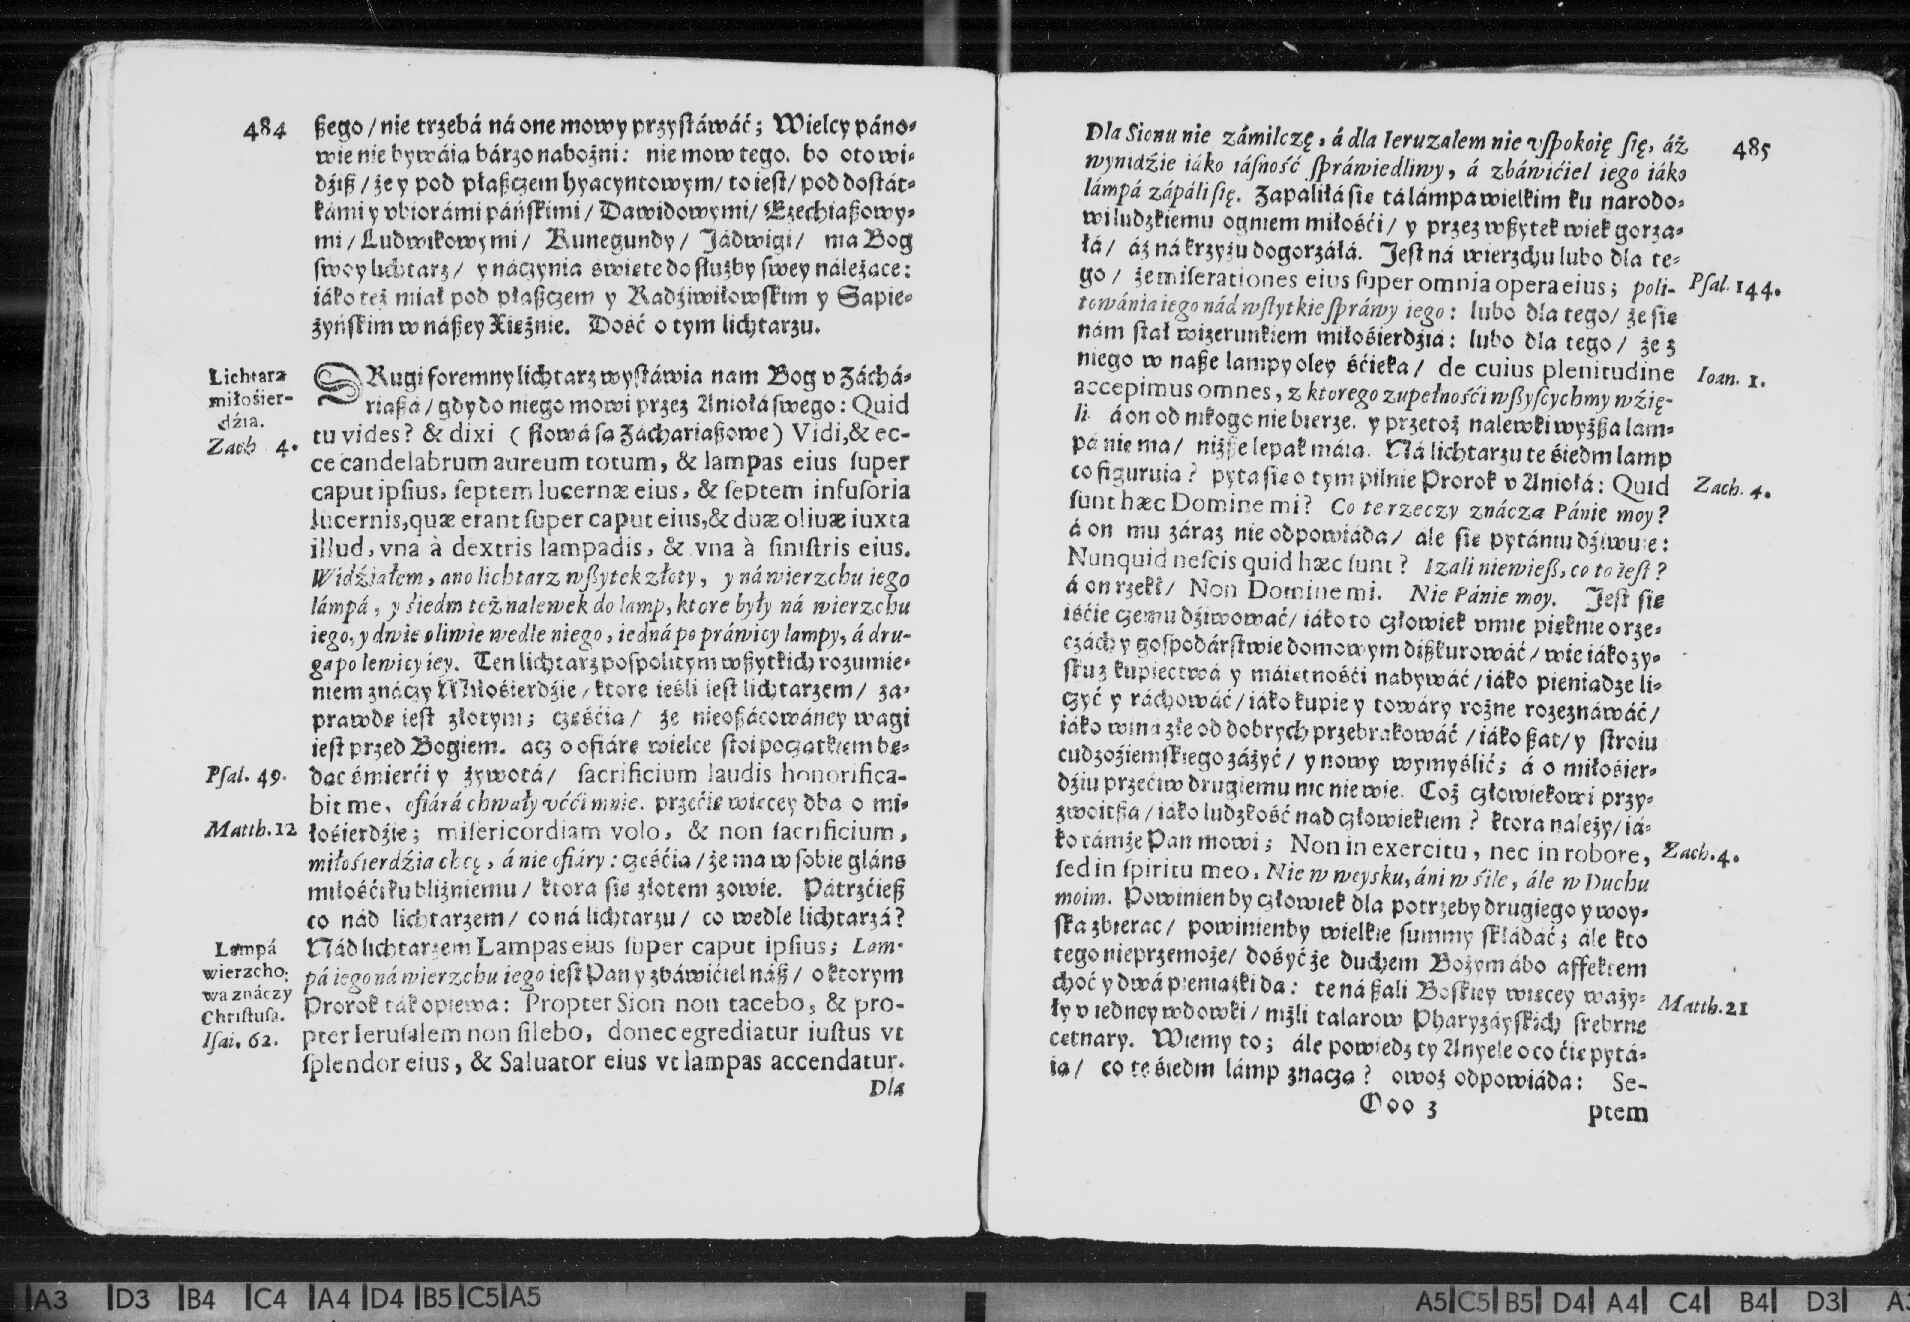 484
ßego / nie trzebá ná one mowy przystáwáć; Wielcy páno-
wie nie bywáią bárzo nabożni: nie mow tego. bo oto wi-
dźiß / że y pod płaßczem hyacyntowym / to iest / pod dostát-
kámi y vbiorámi páńſkimi / Dawidowymi / Ezechiaßowy-
mi / Ludwikowymi / Kunegundy / Jádwigi / ma Bog
ſwoy lichtarz / y náczynia święte do ſłużby ſwey náleżące:
iáko też miał pod płaßczem y Rádźiwiłowſkim y Sapie-
żyńſkim w náßey Xiężnie. Dość o tym lichtarzu.
Lichtarz
miłośier-
dźia.
Zach. 4.
DRugi foremny lichtarz wystáwia nam Bog v Záchá-
riaßá / gdy do niego mowi przez Aniołá ſwego: Quid
tu vides? & dixi ( ſłowá ſą Záchariaßowe ) Vidi, & ec-
ce candelabrum aureum totum, & lampas eius ſuper
caput ipſius, ſeptem lucernæ eius, & ſeptem infuſoria
lucernis, quæ erant ſuper caput eius, & duæ oliuæ iuxta
illud, vna à dextris lampadis, & vna à ſiniſtris eius.
Widźiałem, ano lichtarz wßytek złoty, y ná wierzchu iego
lámpá, y śiedm też nalewek do lamp, ktore były ná wierzchu
iego, y dwie oliwie wedle niego, iedná po práwicy lampy, á dru-
ga po lewicy iey. Ten lichtarz poſpolitym wßytkich rozumie-
niem znáczy Miłośierdźie / ktore ieśli iest lichtarzem / za-
prawdę iest złotym; częśćią / że nieoßácowáney wagi
iest przed Bogiem. acz o ofiárę wielce stoi początkiem bę-
Pſal. 49.
dąc śmierći y żywotá / ſacrificium laudis honorifica-
bit me, ofiárá chwały vćći mnie. przećię więcey dba o mi-
Matth. 12
łośierdźie; miſericordiam volo, & non ſacrificium,
miłośierdźia chcę, á nie ofiáry: częśćią / że ma w ſobie gláns
miłośći ku bliźniemu / ktora się złotem zowie. Pátrzćieß
co nád lichtarzem / co ná lichtarzu / co wedle lichtarzá?
Lampá
wierzcho-
wa znáczy
Chriſtuſa.
Iſai. 62.
Nád lichtarzem Lampas eius ſuper caput ipſius; Lam-
pá iego ná wierzchu iego iest Pan y zbáwićiel náß / o ktorym
Prorok ták opiewa: Propter Sion non tacebo, & pro-
pter Ieruſalem non ſilebo, donec egrediatur iuſtus vt
ſplendor eius, & Saluator eius vt lampas accendatur.
Dla
485
Dla Sionu nie zámilczę, á dla Ieruzalem nie vſpokoię ſię, áż
wynidźie iáko iáſność ſpráwiedliwy, á zbáwićiel iego iáko
lámpá zápáli ſię. Zapaliłá się tá lámpa wielkim ku narodo-
wi ludzkiemu ogniem miłośći / y przez wßytek wiek gorza-
łá / áż ná krzyżu dogorzáłá. Jest ná wierzchu lubo dla te-
go / że miſerationes eius ſuper omnia opera eius; poli-
Pſal. 144.
towánia iego nád wſſytkie ſpráwy iego: lubo dla tego / że się
nám stał wizerunkiem miłośierdźia: lubo dla tego / że z
niego w naße lampy oley śćieka / de cuius plenitudine
Ioan. 1.
accepimus omnes, z ktorego zupełnośći wßyſcychmy wźię-
li á on od nikogo nie bierze. y przetoż nalewki wyżßa lam-
pá nie ma / niżße lepak máią. Ná lichtarzu te śiedm lamp
co figuruią? pyta się o tym pilnie Prorok v Aniołá: Quid
Zach. 4.
ſunt hæc Domine mi? Co te rzeczy znáczą Pánie moy?
á on mu záraz nie odpowiáda / ale się pytániu dźiwuie:
Nunquid neſcis quid hæc ſunt? Izali nie wieß, co to ieſt?
á on rzekł / Non Domine mi. Nie Pánie moy. Jest się
iśćie czemu dźiwować / iáko to człowiek vmie pięknie o rze-
czách y goſpodárstwie domowym dißkurowáć / wie iáko zy-
ſku z kupiectwá y máiętnośći nabywáć / iáko pieniądze li-
czyć y ráchowáć / iáko kupie y towáry rożne rozeznáwáć /
iáko winá złe od dobrych przebrákowáć / iáko ßat / y stroiu
cudzoźiemſkiego záżyć / y nowy wymyślić; á o miłośier-
dźiu przećiw drugiemu nic nie wie. Coż człowiekowi przy-
zwoitßa / iáko ludzkość nad człowiekiem? ktora należy / iá-
ko támże Pan mowi; Non in exercitu, nec in robore,
Zach. 4.
ſed in ſpiritu meo, Nie w woyſku, áni w śile, ále w Duchu
moim. Powinien by człowiek dla potrzeby drugiego y woy-
ſka zbierac / powinienby wielkie ſummy ſkłádać; ale kto
tego nieprzemoże / dosyć że duchem Bożym ábo affektem
choć y dwá pieniążki da: te ná ßali Boſkiey więcey waży-
Matth. 21
ły v iedney wdowki / niżli talarow Pharyzáyſkich ſrebrne
cetnary. Wiemy to; ále powiedz ty Anyele o co ćię pytá-
ią / co te śiedm lámp znaczą? owoż odpowiáda: Se-
Ooo 3
ptem